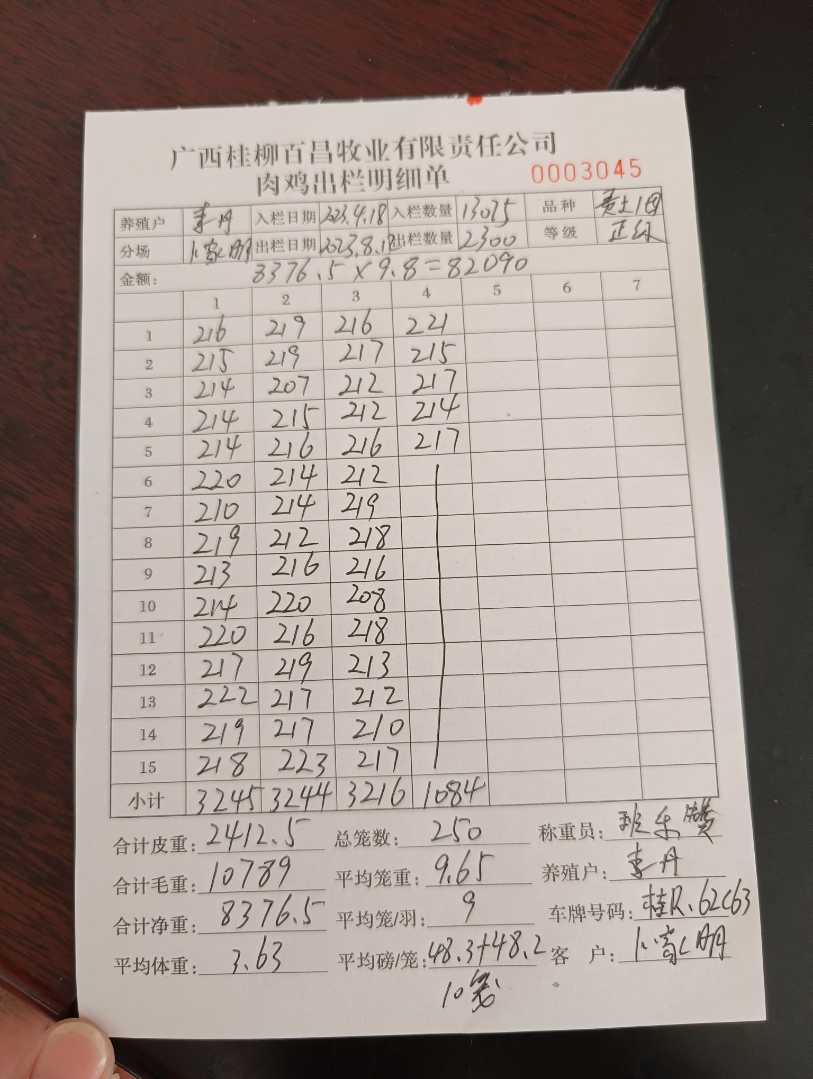 广西桂柳百昌牧业有限责任公司
肉鸡出栏明细单 0003045
养殖户 李丹 入栏日期 2023.4.18 入栏数量 13075 品种 黄土1号
分场 出栏日期 2023.8.18 出栏数量 2300 等级 正红
金额: 8376.5×9.8=82090
1 2 3 4 5 6 7
1 216 219 216 221
2 215 219 217 215
3 214 207 212 217
4 214 215 212 214
5 214 216 216 217
6 220 214 212
7 210 214 219
8 219 212 218
9 213 216 216
10 214 220 208
11 220 216 218
12 217 219 213
13 222 217 212
14 219 217 210
15 218 223 217
小计 3245 3244 3216 1084
合计皮重: 2412.5 总笼数: 250 称重员:
合计毛重: 10789 平均笼重: 9.65 养殖户: 李丹
合计净重: 8376.5 平均笼/羽: 9 车牌号码: 桂R.62C63
平均体重: 3.63 平均磅/笼: 48.3+48.2 客户:
10笼